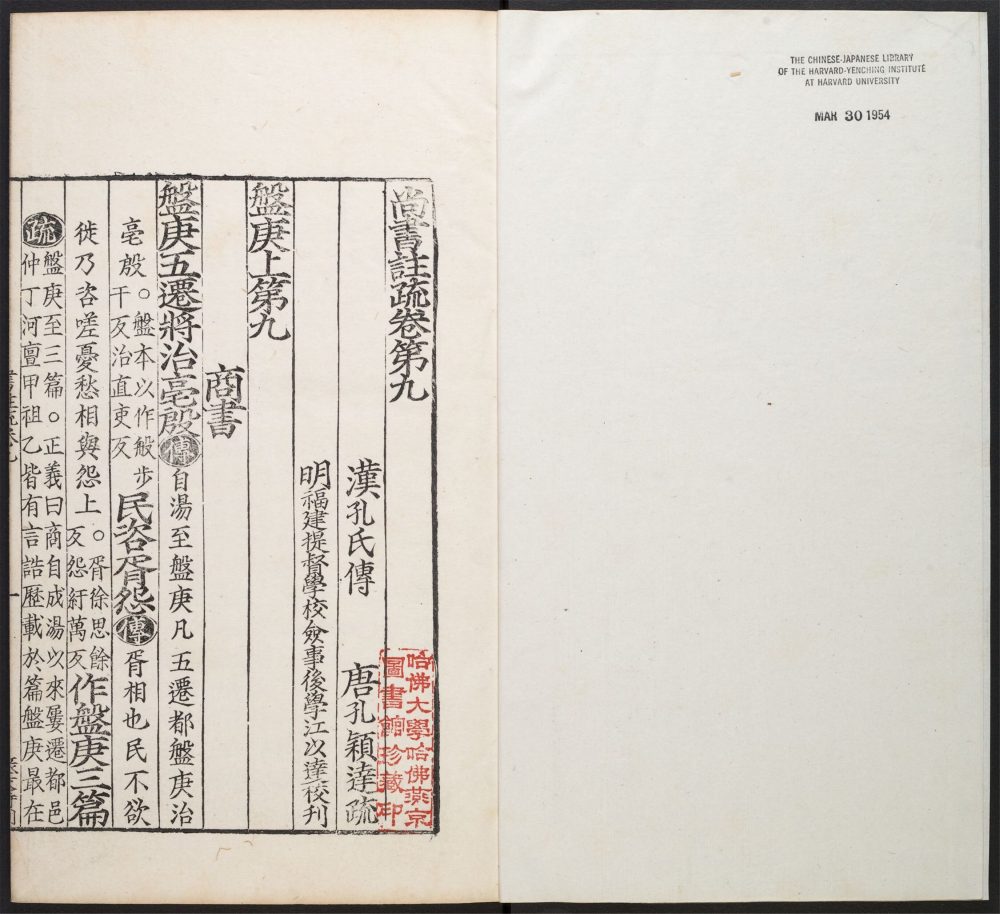 THE CHINESE-JAPANESE LIBRARY
OF THE HARVARD-YENCHING INSTITUTE
AT HARVARD UNIVERSITY
MAR 30 1954
尚書註疏卷第九
哈佛大學哈佛燕京
圖書館珍藏印
漢孔氏傳 唐孔穎達疏
明福建提督學校僉事後學江以達校刊
盤庚上第九
商書
盤庚五遷將治亳殷傳自湯至盤庚凡五遷都盤庚治
亳殷○盤本以作般步干反治直吏反民咨胥怨傳胥相也民不欲
徙乃咨嗟憂愁相與怨上○胥徐思餘反怨紆萬反作盤庚三篇
疏盤庚至三篇○正義曰商自成湯以來屢遷都邑
仲丁河亶甲祖乙皆有言誥歷載於篇盤庚最在